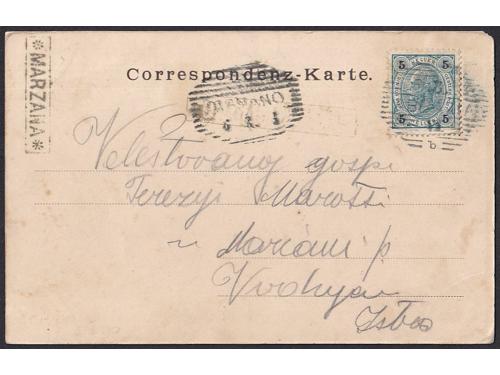 *MARZANA*
Correspondenz-Karte.
5 5
5 5
DIGNANO
b
Velestovanoj gospi
Tereziji Marotti
u Marčani p.
Vodnjan
Istra